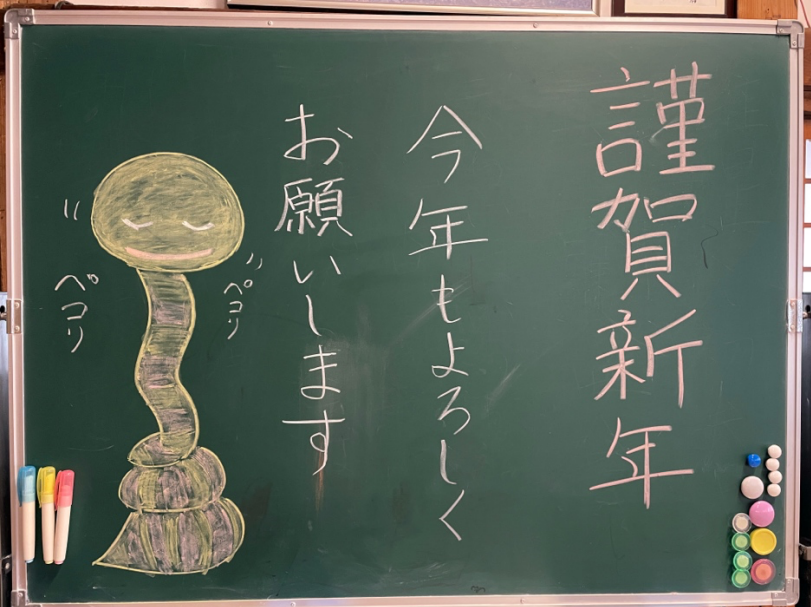 謹賀新年
今年もよろしく
お願いします
ペコリ
ペコリ